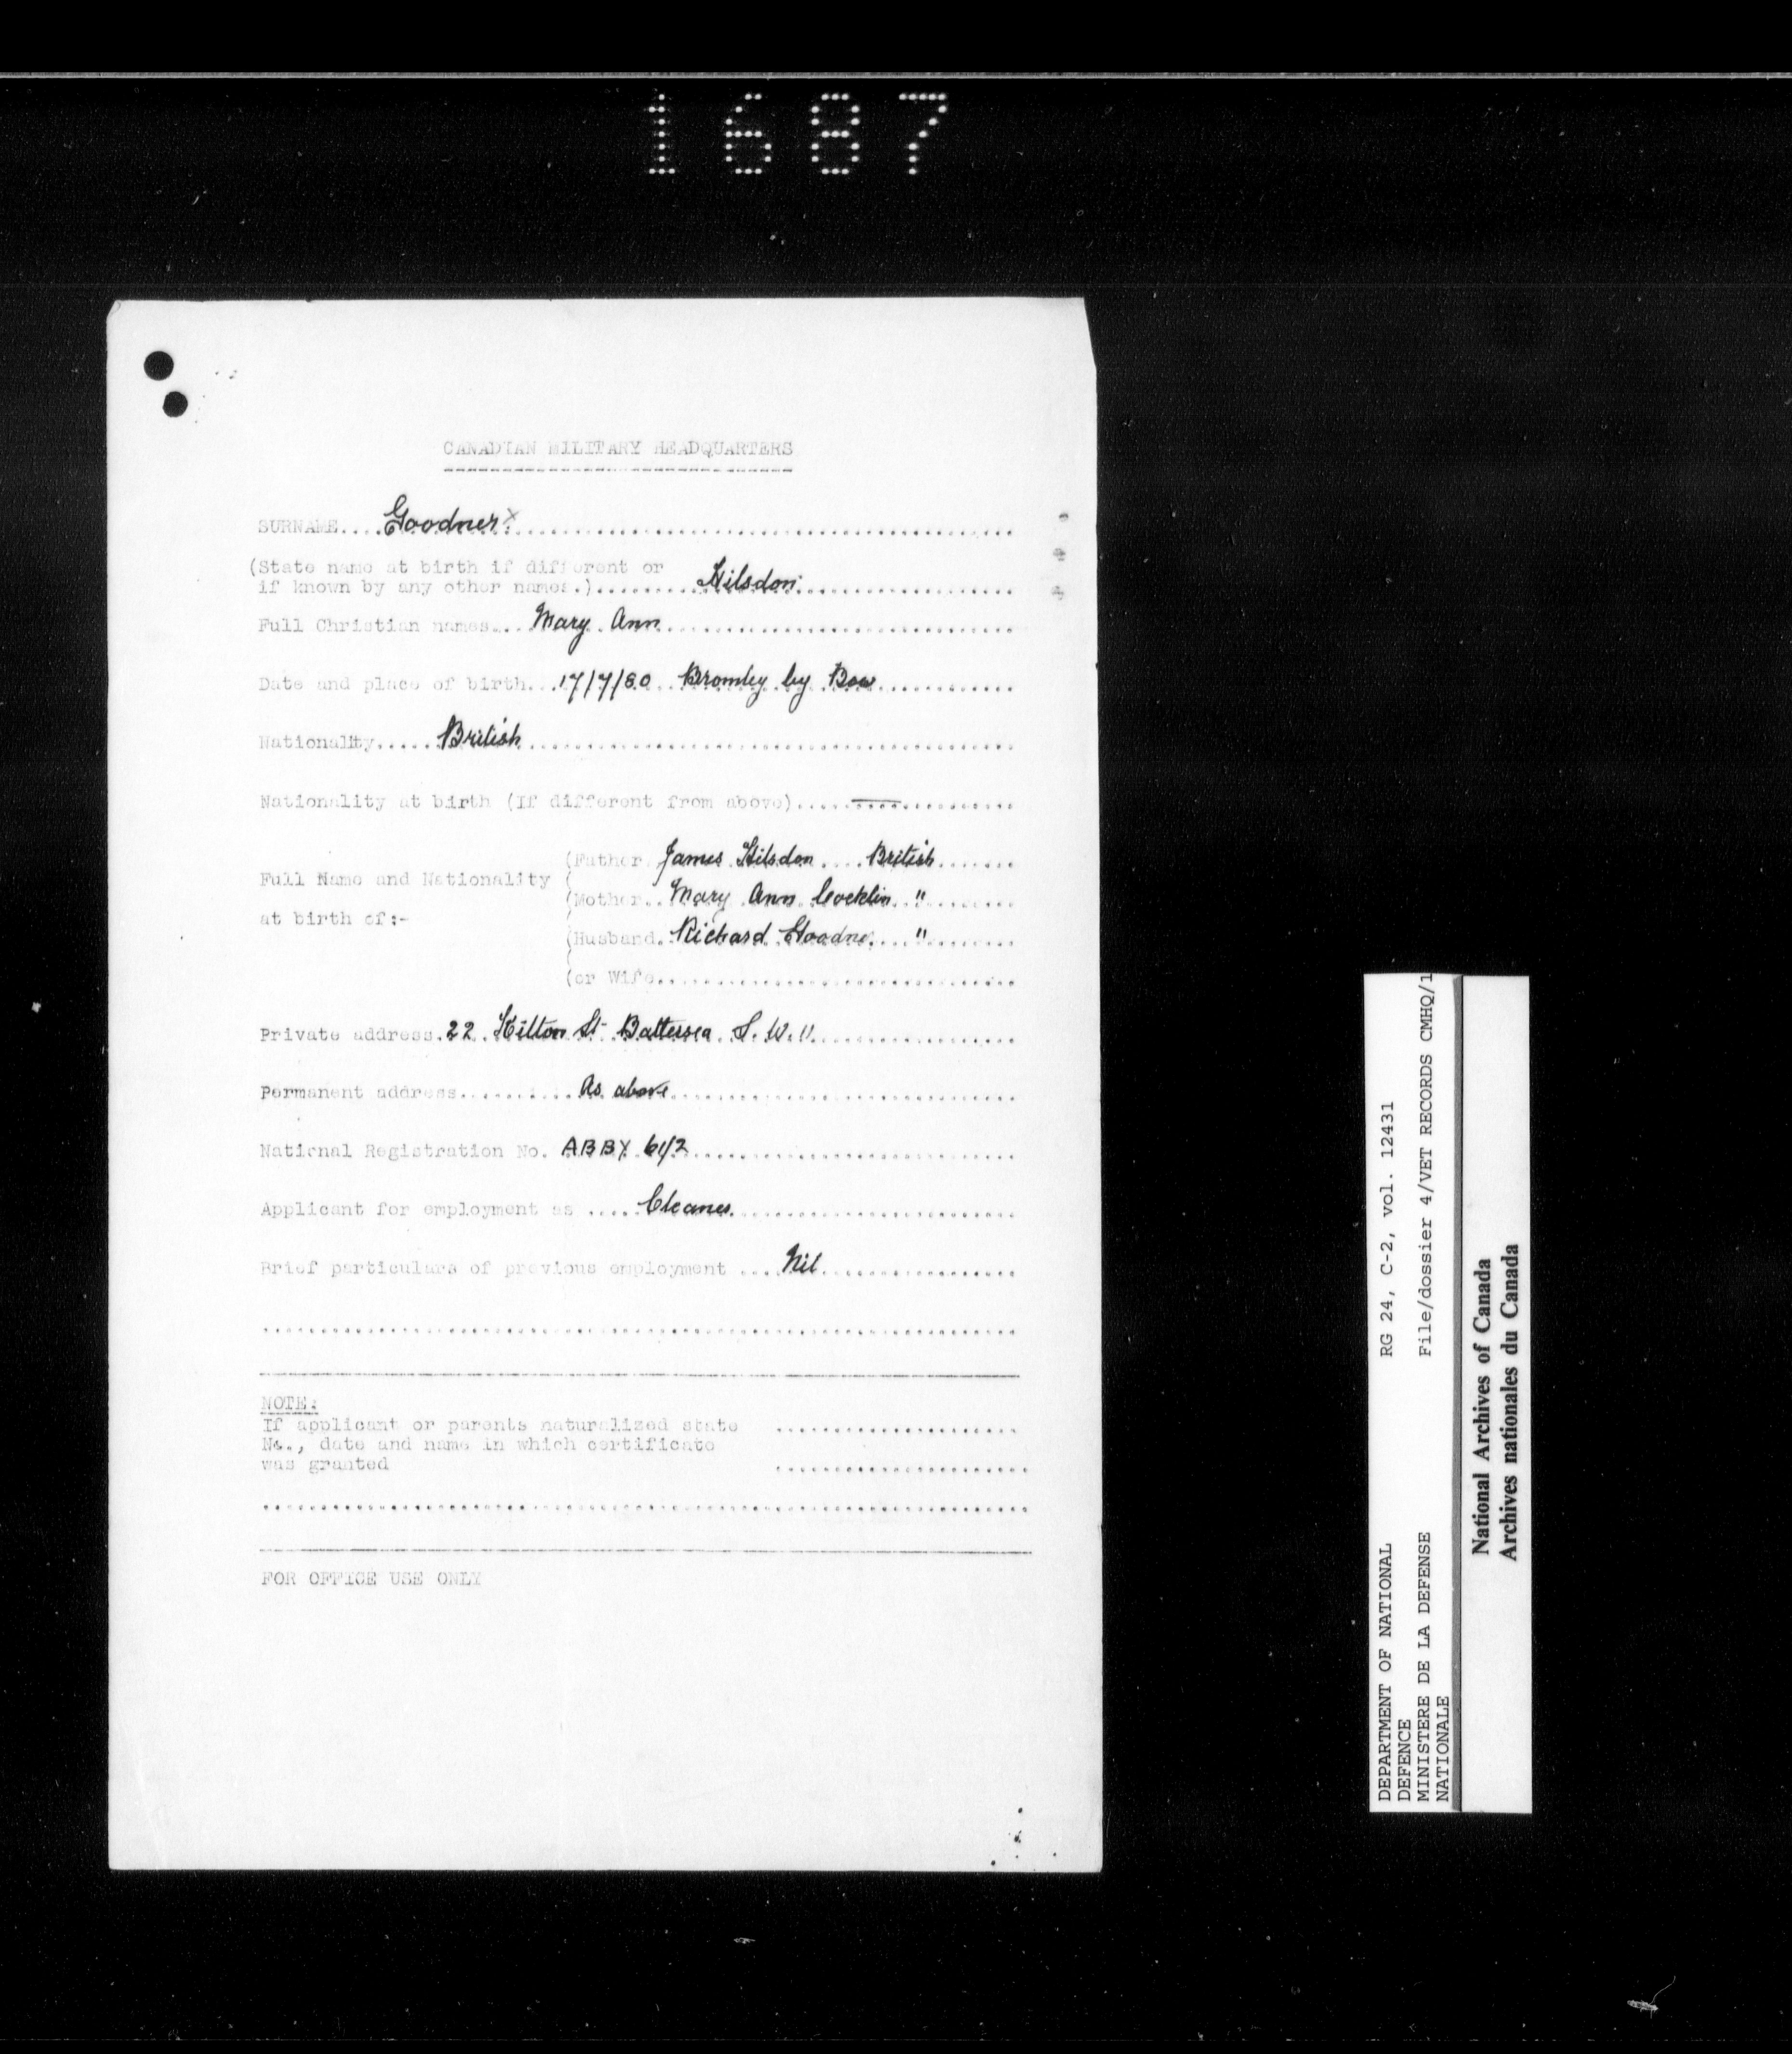 1687
CANADIAN MILITARY HEADQUARTERS
SURNAME....Goodner x
(State name at birth if different or
if known by any other names.)..........Hilsdon
Full Christian names....Mary Ann
Date and place of birth...17/7/80 Bromley by Bow
Nationality.....British
Nationality at birth (If different from above)....—
Full Name and Nationality
at birth of:-
(Father James Hilsdon .... British
(Mother.. Mary Ann Cocklin .. "
(Husband. Richard Goodner.... "
(or Wife
Private address.22 Hilton St Battersea S.W.11
Permanent address...........As above
National Registration No. ABBY 61/2
Applicant for employment as ....Cleaner
Brief particulars of previous employment ....Nil
NOTE:
If applicant or parents naturalized state
No., date and name in which certificate
was granted
FOR OFFICE USE ONLY
DEPARTMENT OF NATIONAL
DEFENCE
MINISTERE DE LA DEFENSE
NATIONALE
RG 24, C-2, vol. 12431
File/dossier 4/VET RECORDS CMHQ/1
National Archives of Canada
Archives nationales du Canada